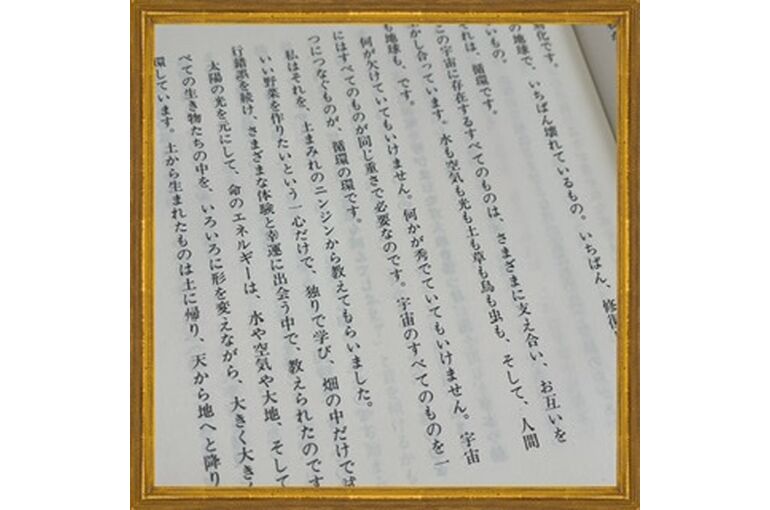 刻化です。
の地球で、いちばん壊れているもの。いちばん、修復
いもの。
それは、循環です。
この宇宙に存在するすべてのものは、さまざまに支え合い、お互いを
かし合っています。水も空気も光も土も草も鳥も虫も、そして、人間
も地球も、です。
何が欠けていてもいけません。何かが秀でていてもいけません。宇宙
にはすべてのものが同じ重さで必要なのです。宇宙のすべてのものを一
つにつなぐものが、循環の環です。
私はそれを、土まみれのニンジンから教えてもらいました。
いい野菜を作りたいという一心だけで、独りで学び、畑の中だけでは
行錯誤を続け、さまざまな体験と幸運に出会う中で、教えられたのです
太陽の光を元にして、命のエネルギーは、水や空気や大地、そして
べての生き物たちの中を、いろいろに形を変えながら、大きく大き
環しています。土から生まれたものは土に帰り、天から地へと降り